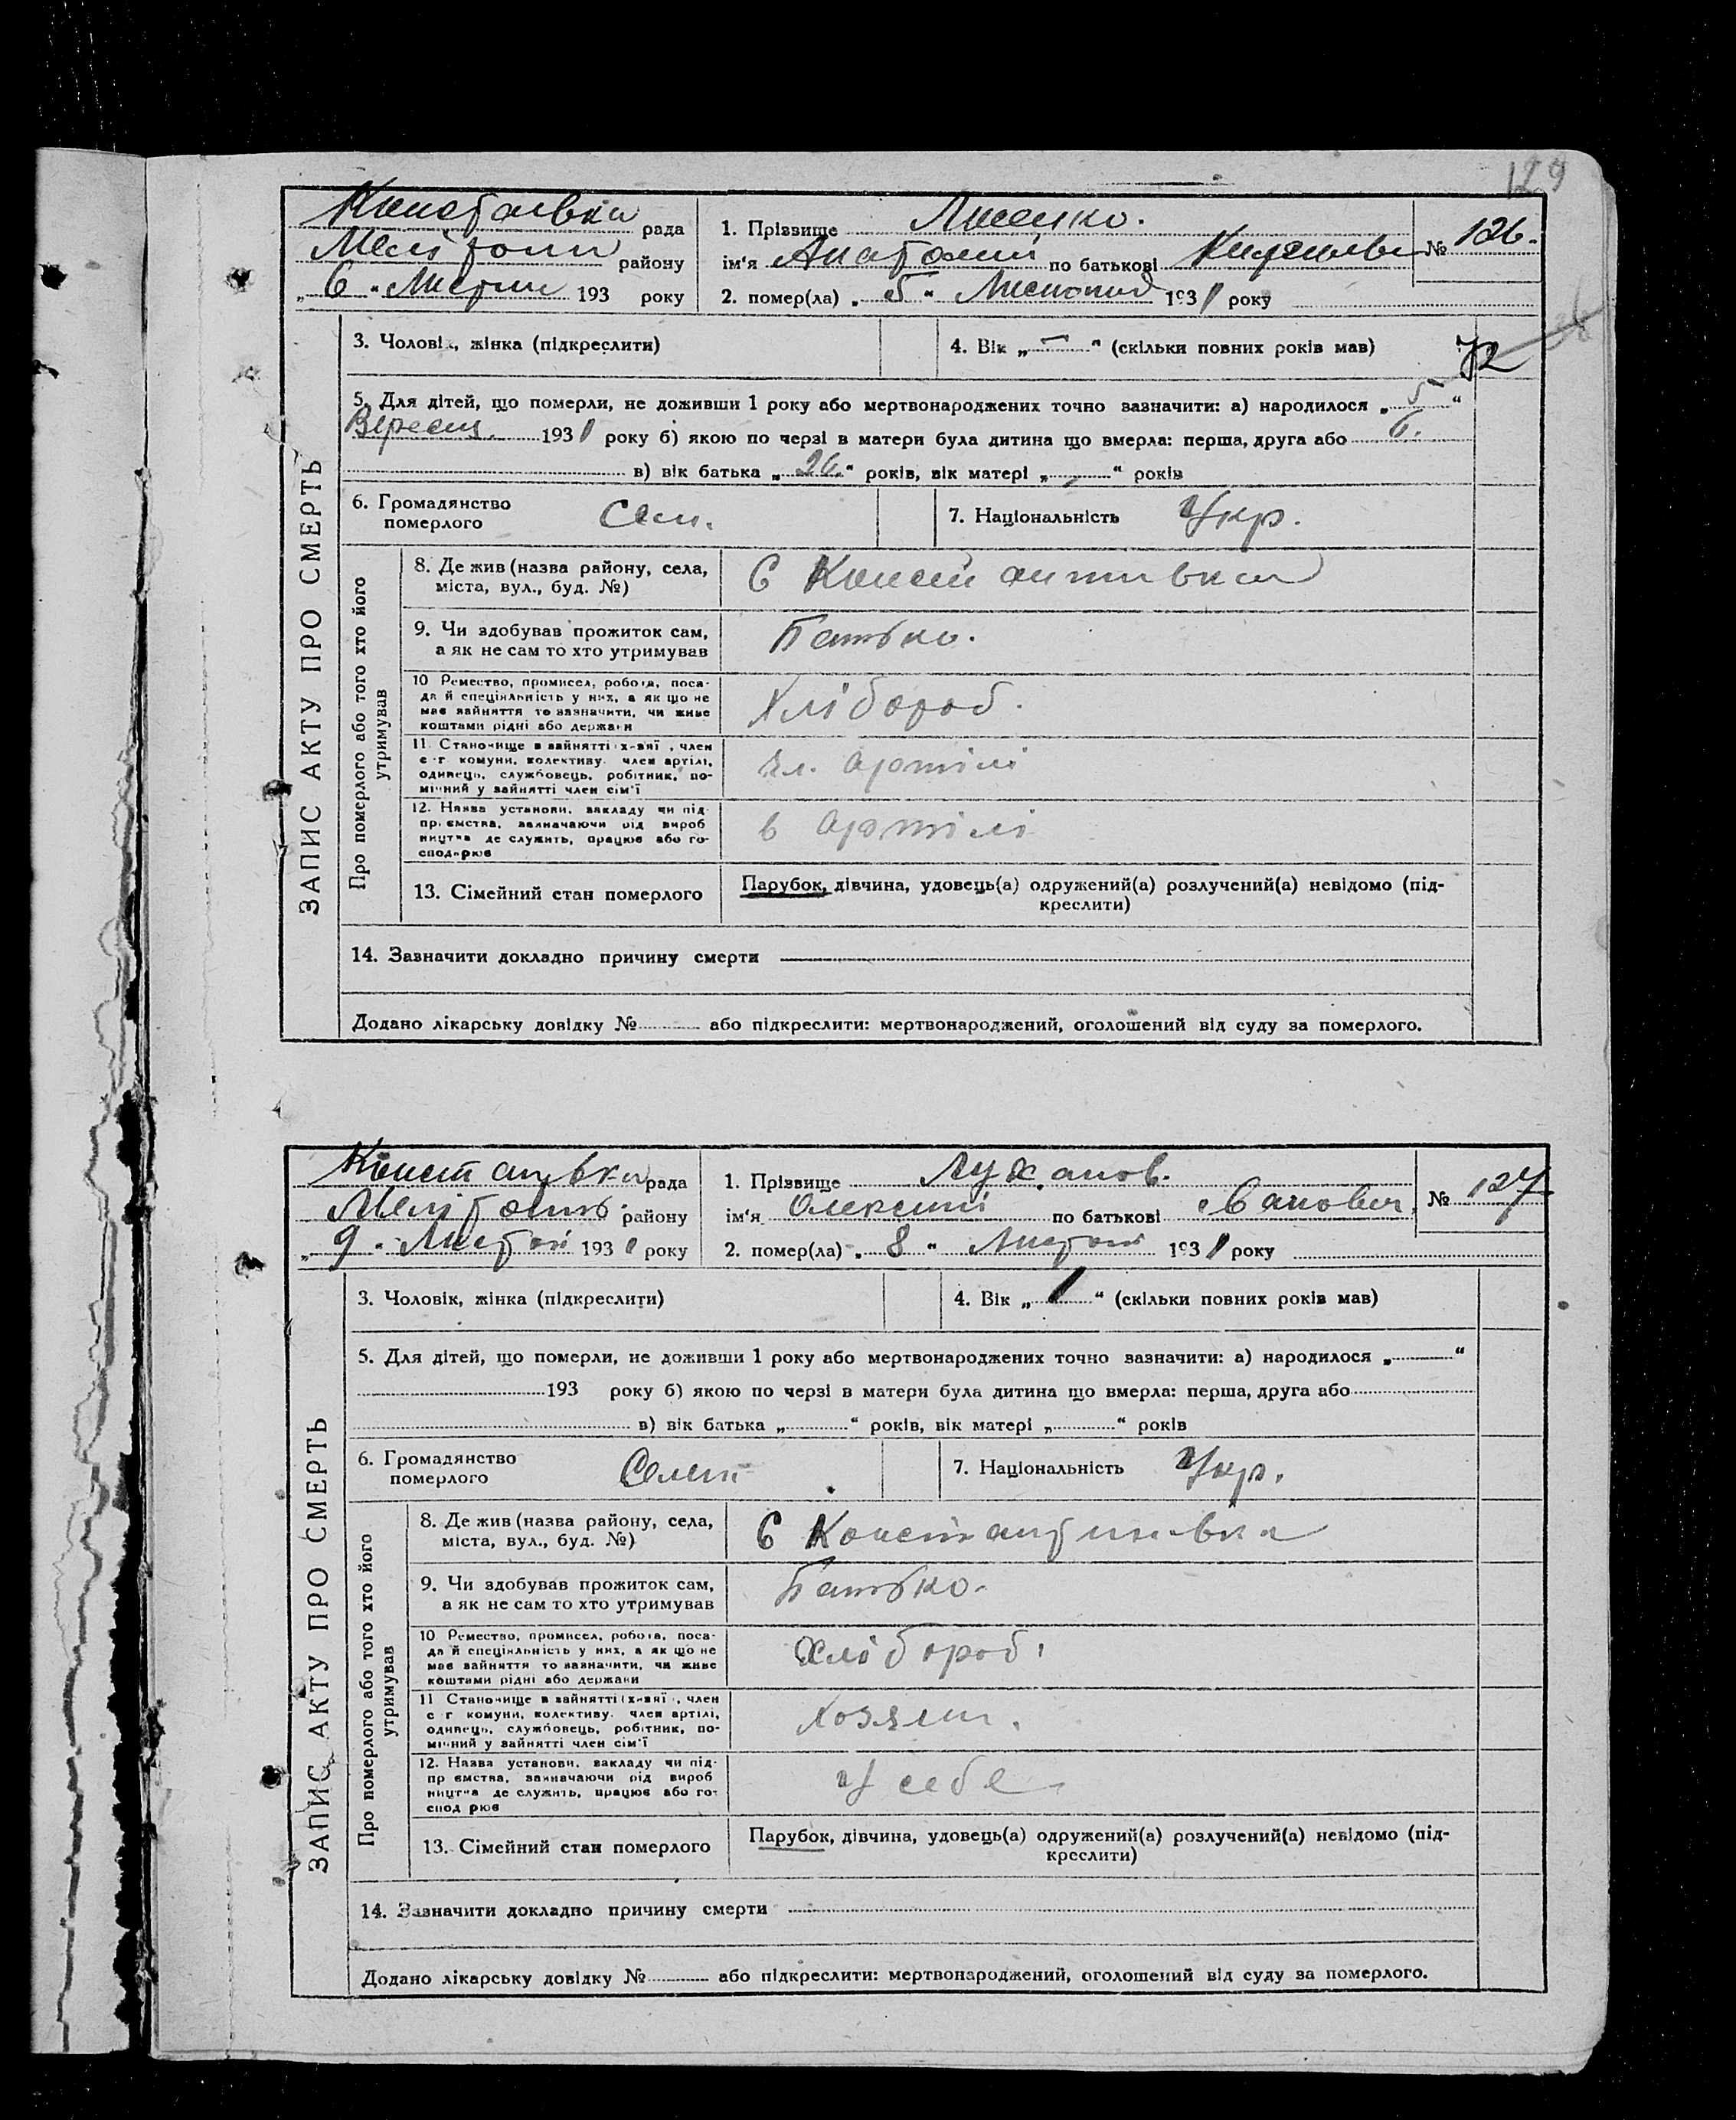 129
рада 1. Прізвище Лисенко. № 126.
району ім'я Анатолий по батькові
„ 6 " 193 року 2. помер(ла) „ 5 " 1931 року
3. Чоловік, жінка (підкреслити) 4. Вік „ — " (скільки повних років мав) 72
5. Для дітей, що померли, не доживши 1 року або мертвонароджених точно зазначити: а) народилося „ 5 "
1931 року б) якою по черзі в матери була дитина що вмерла: перша, друга або 6.
в) вік батька „ 26 " років, вік матері „ " років
6. Громадянство померлого 7. Національність Укр.
ЗАПИС АКТУ ПРО СМЕРТЬ
Про померлого або того хто його утримував
8. Де жив (назва району, села,
міста, вул., буд. №)
С Константинвка
9. Чи здобував прожиток сам,
а як не сам то хто утримував
Батько.
10 Ремество, промисел, робота, поса-
да й спеціяльність у них, а як що не
має зайняття то зазначити, чи живе
коштами рідні або держави
Хлібороб.
11. Становище в зайнятті х-вяї, член
с-г комуни, колективу, член артілі,
одинець, службовець, робітник, по-
мічний у зайнятті член сім'ї
чл. артілі
12. Назва установи, закладу чи під-
приємства, зазначаючи рід вироб
ництва де служить, працює або го-
сподарює
в артілі
13. Сімейний стан померлого Парубок, дівчина, удовець(а) одружений(а) розлучений(а) невідомо (під-
креслити)
14. Зазначити докладно причину смерти
Додано лікарську довідку № або підкреслити: мертвонароджений, оголошений від суду за померлого.
рада 1. Прізвище Луханов. № 127
району ім'я Олексий по батькові Іванович
„ 9 " 1931 року 2. помер(ла) „ 8 " 1931 року
3. Чоловік, жінка (підкреслити) 4. Вік „ 1 " (скільки повних років мав)
5. Для дітей, що померли, не доживши 1 року або мертвонароджених точно зазначити: а) народилося „ "
193 року б) якою по черзі в матери була дитина що вмерла: перша, друга або
в) вік батька „ " років, вік матері „ " років
6. Громадянство померлого 7. Національність Укр.
ЗАПИС АКТУ ПРО СМЕРТЬ
Про померлого або того хто його утримував
8. Де жив (назва району, села,
міста, вул., буд. №)
С Константинвка
9. Чи здобував прожиток сам,
а як не сам то хто утримував
Батько.
10 Ремество, промисел, робота, поса-
да й спеціяльність у них, а як що не
має зайняття то зазначити, чи живе
коштами рідні або держави
Хлібороб.
11 Становище в зайнятті (х-вяї, член
с г комуни, колективу, член артілі,
одинець, службовець, робітник, по-
мічний у зайнятті член сім'ї
Хозяин.
12. Назва установи, закладу чи під-
приємства, зазначаючи рід вироб
ництва де служить, працює або го-
сподарює
У себе
13. Сімейний стан померлого Парубок, дівчина, удовець(а) одружений(а) розлучений(а) невідомо (під-
креслити)
14. Зазначити докладно причину смерти
Додано лікарську довідку № або підкреслити: мертвонароджений, оголошений від суду за померлого.